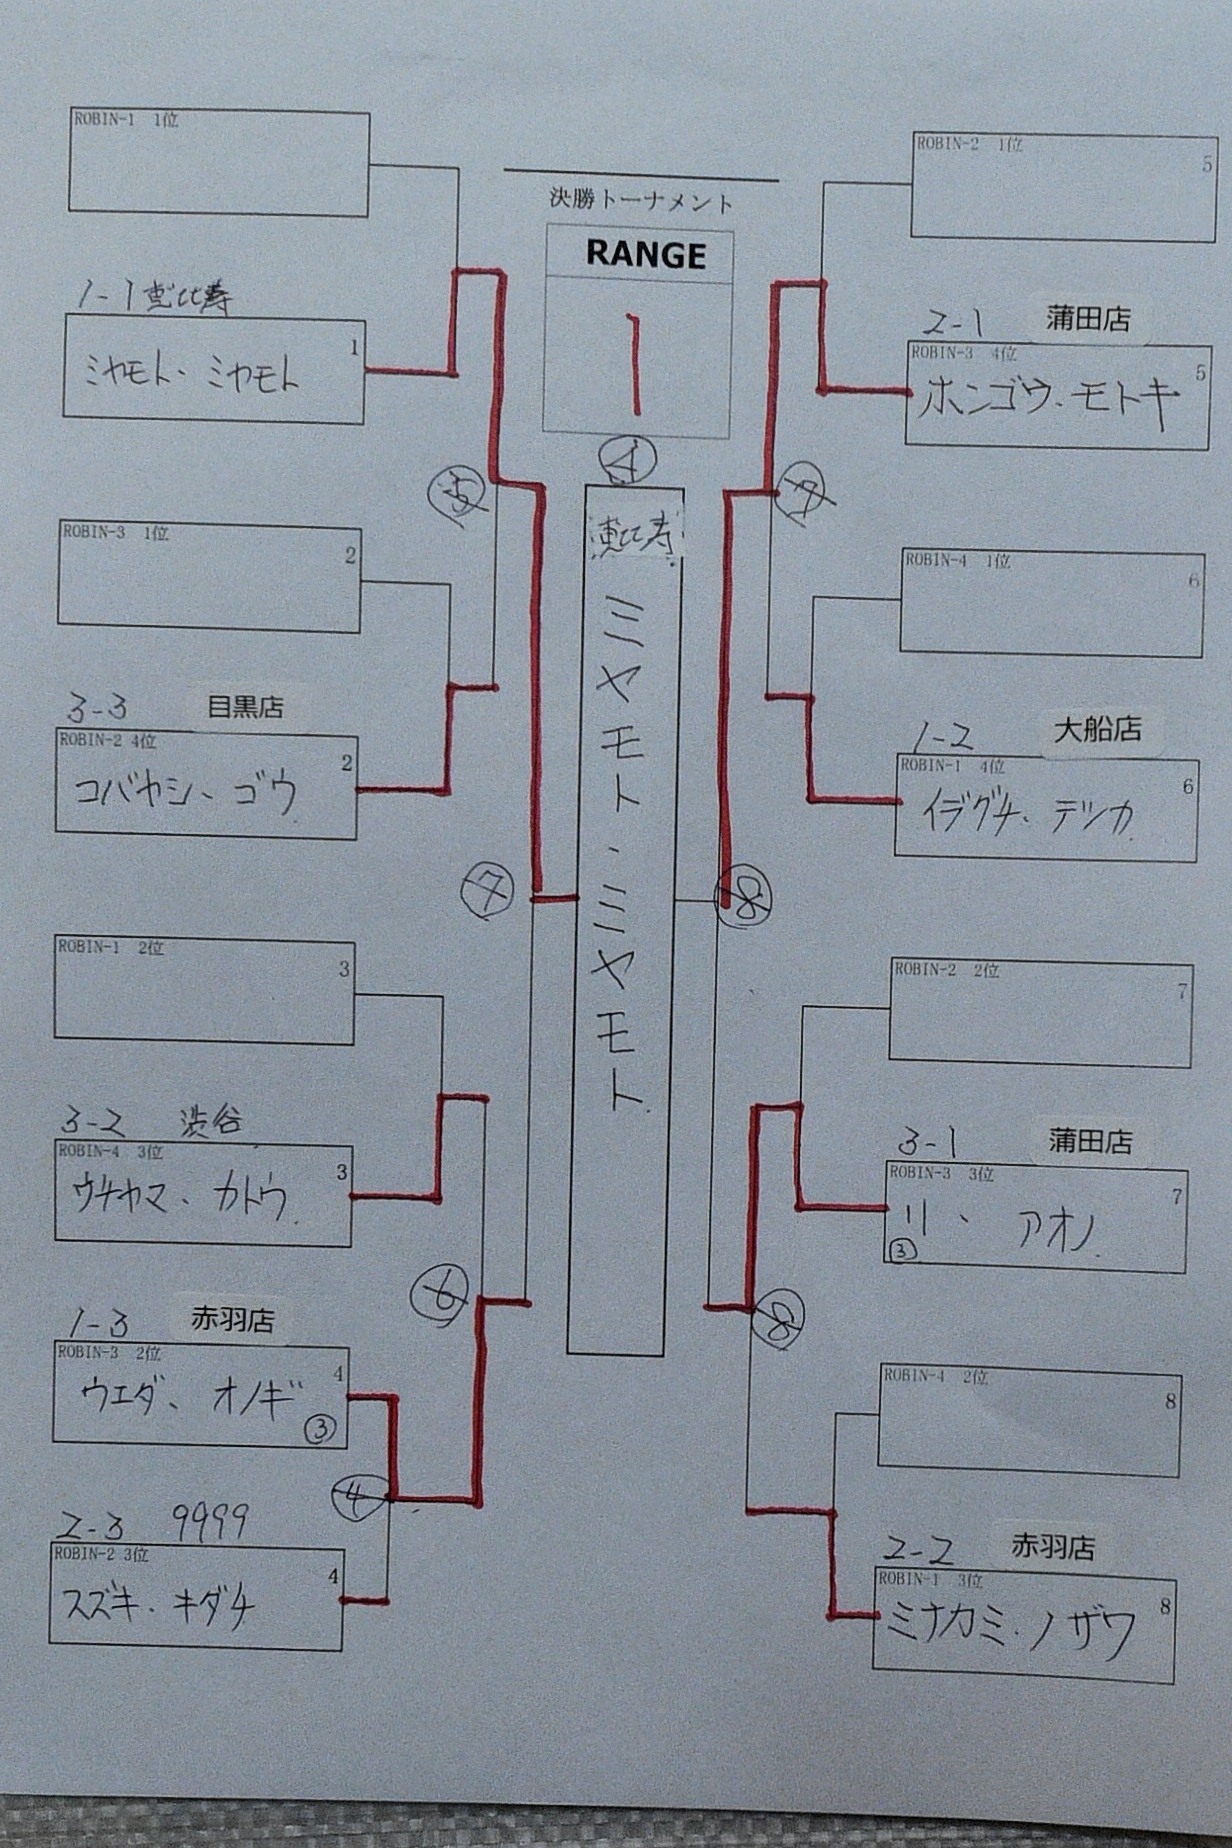 決勝トーナメント
RANGE
1
④
恵比寿
ミヤモト・ミヤモト
ROBIN-1 1位
1-1 恵比寿
ミヤモト・ミヤモト
1
⑤
ROBIN-3 1位
2
3-3 目黒店
ROBIN-2 4位
2
コバヤシ、ゴウ
⑦
ROBIN-1 2位
3
3-2 渋谷
ROBIN-4 3位
3
ウチヤマ、カトウ
⑥
1-3 赤羽店
ROBIN-3 2位
4
ウエダ、オノギ
③
④
2-3 9999
ROBIN-2 3位
4
スズキ・キダチ
ROBIN-2 1位
5
2-1 蒲田店
ROBIN-3 4位
5
ホンゴウ・モトキ
⑦
ROBIN-4 1位
6
1-2 大船店
ROBIN-1 4位
6
イデグチ、テツカ
⑧
ROBIN-2 2位
7
3-1 蒲田店
ROBIN-3 3位
7
リ、アオノ
③
⑧
ROBIN-4 2位
8
2-2 赤羽店
ROBIN-1 3位
8
ミナカミ・ノザワ